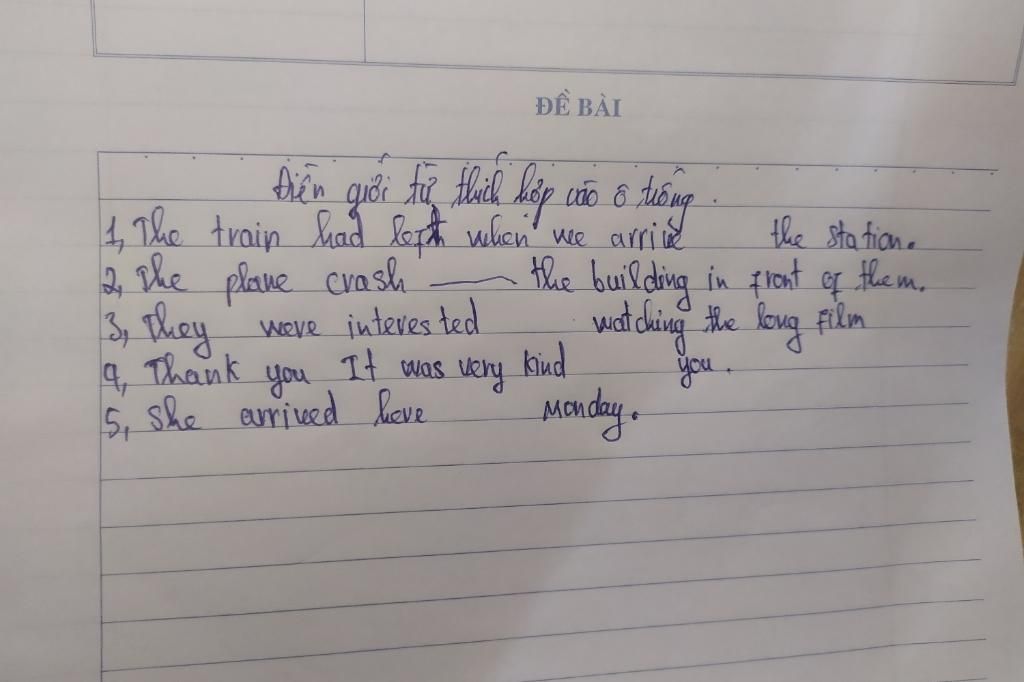 ĐỀ BÀI
Điền giới từ thích hợp vào ô trống.
1, The train had left when we arrive the station.
2, The plane crash —— the building in front of them.
3, They were interested watching the long film
4, Thank you It was very kind you.
5, She arrived here Monday.